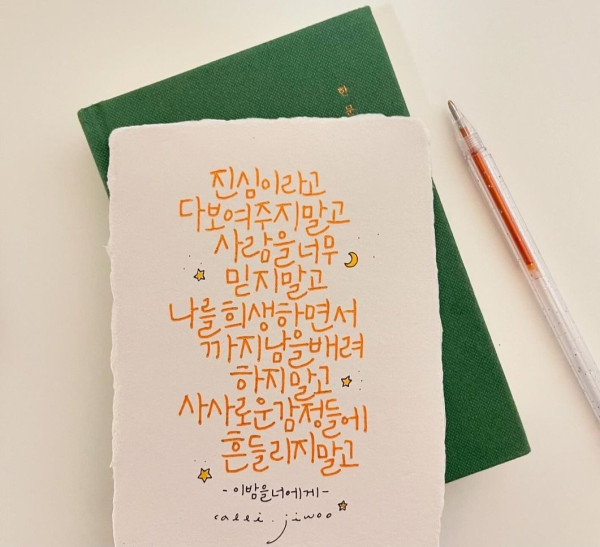 한
진심이라고
다보여주지말고
사람을너무
믿지말고
나를희생하면서
까지남을배려
하지말고
사사로운감정들에
흔들리지말고
-이밤을너에게-
calli.jiwoo